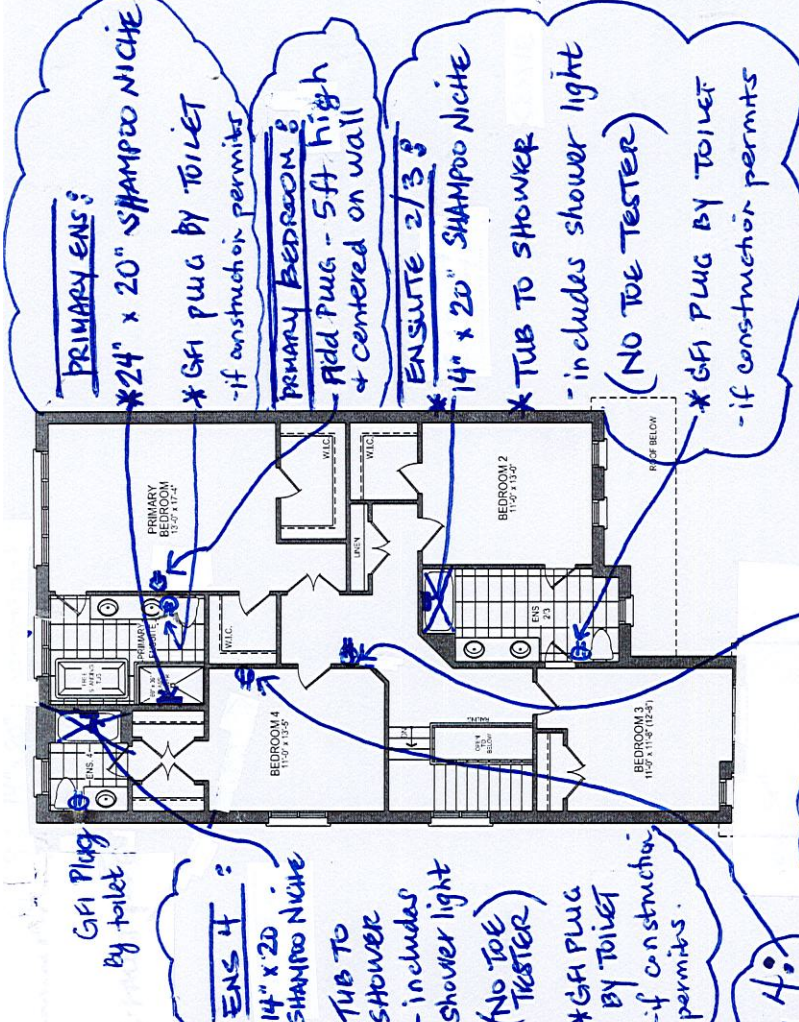 PRIMARY ENS:
* 24" x 20" SHAMPOO NICHE
* GFI PLUG BY TOILET
- if construction permits
PRIMARY BEDROOM:
Add PLUG - 5ft high
& centered on wall
ENSUITE 2/3:
* 14" x 20" SHAMPOO NICHE
* TUB TO SHOWER
- includes shower light
(NO TOE TESTER)
* GFI PLUG BY TOILET
- if construction permits
PRIMARY
BEDROOM
13'-0" x 17'-4"
W.I.C.
W.I.C.
LINEN
BEDROOM 2
11'-0" x 13'-0"
ROOF BELOW
PRIMARY
ENSUITE
FREE
STANDING
TUB
W.I.C.
ENS
2/3
ENS. 4
BEDROOM 4
11'-0" x 13'-5"
OPEN
TO
BELOW
BEDROOM 3
11'-0" x 11'-8" (12'-8")
GFI Plug
By toilet
ENS 4:
14" x 20
SHAMPOO NICHE
TUB TO
SHOWER
- includes
shower light
(NO TOE
TESTER)
* GFI PLUG
BY TOILET
- if construction
permits.
4: